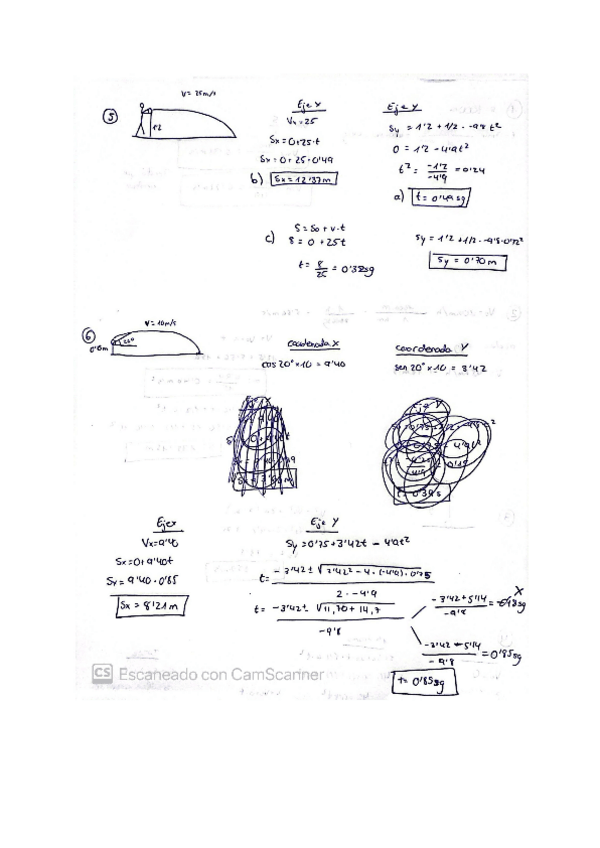 5
V = 25m/s
1'2
Eje X
Vx = 25
Sx = 0+25·t
Sx = 0 + 25·0'49
b) Sx = 12'37m
Eje Y
Sy = 1'2 + 1/2 · -9'8 t²
0 = 1'2 - 4'9t²
t² = -1'2 / -4'9 = 0'24
a) t = 0'49 sg
c) S = So + v·t
8 = 0 + 25t
t = 8/25 = 0'32sg
Sy = 1'2 + 1/2 · -9'8·0'32²
Sy = 0'70m
6
V = 10m/s
20°
coordenada X
cos 20° × 10 = 9'40
coordenada Y
sen 20° × 10 = 3'42
Eje x
Vx = 9'40
Sx = 0 + 9'40t
Sx = 9'40 · 0'85
Sx = 8'21m
Eje Y
Sy = 0'75 + 3'42t - 4'9t²
t = -3'42 ± √3'42² - 4 · (-4'9) · 0'75 / 2 · -4'9
t = -3'42 ± √11,70 + 14,7 / -9'8
-3'42 + 5'14 / -9'8 = sg X
-3'42 - 5'14 / -9'8 = 0'85 sg
t = 0'85sg
CS Escaneado con CamScanner